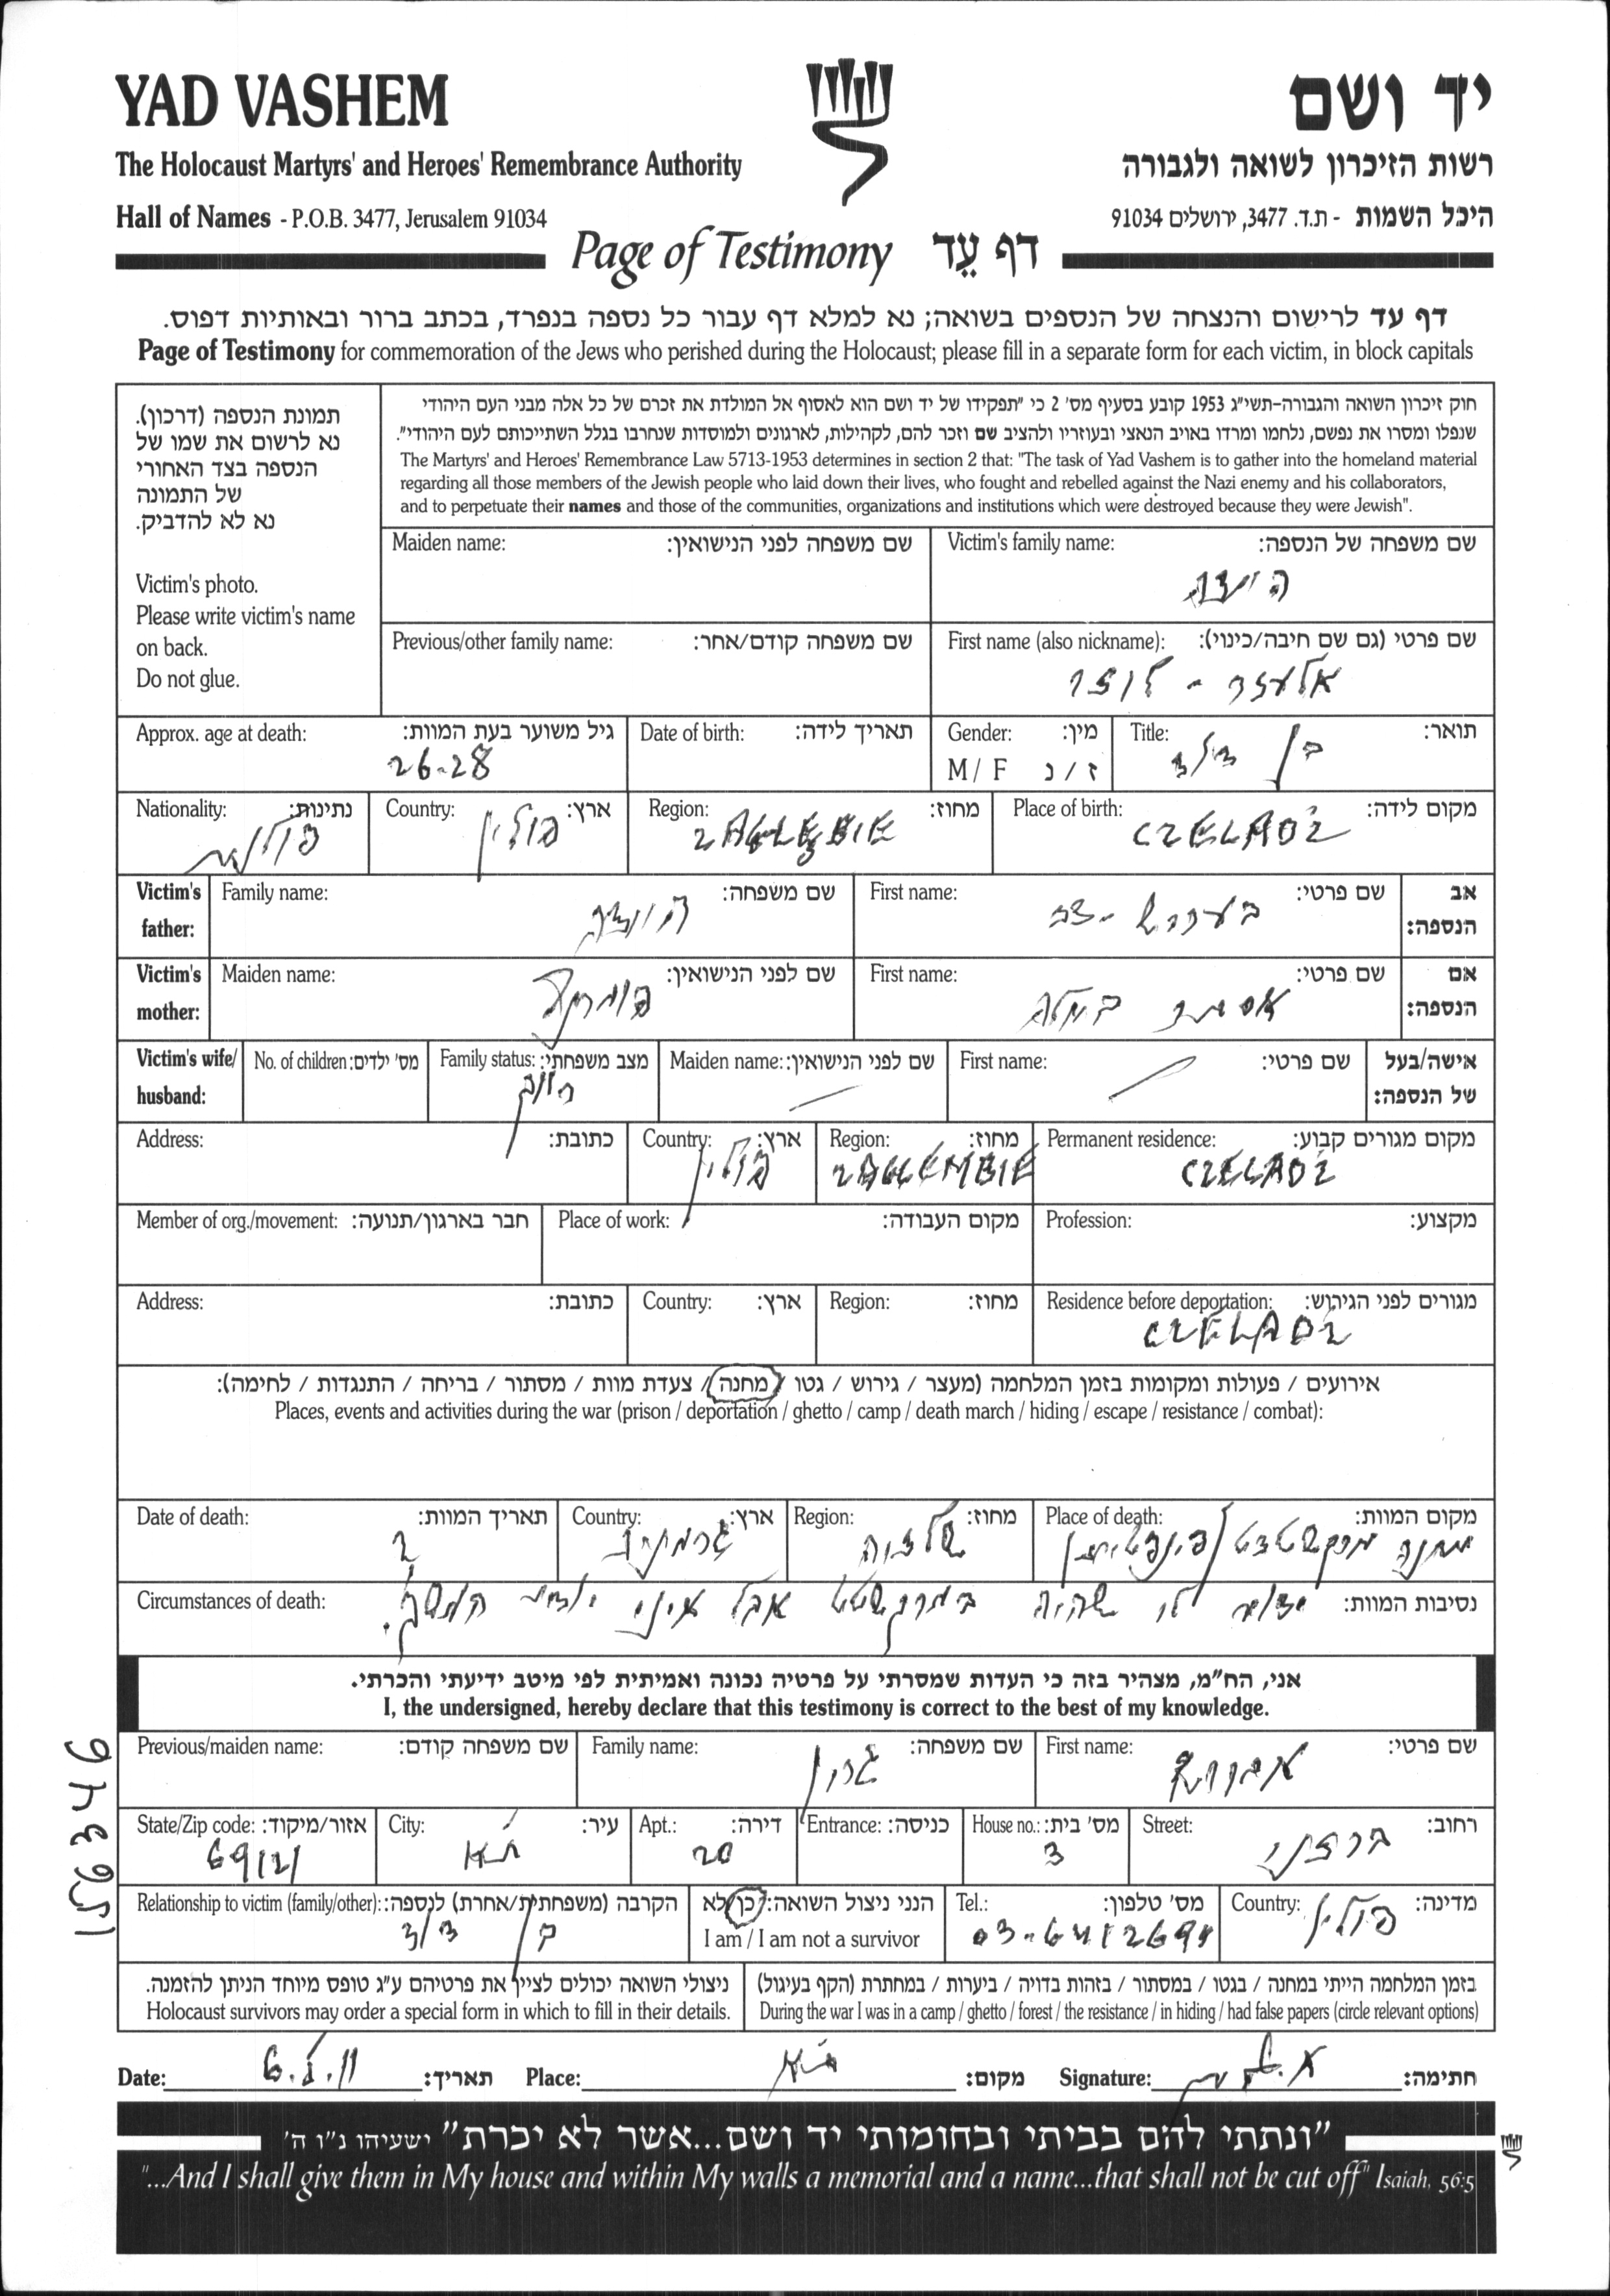 YAD VASHEM
יד ושם
The Holocaust Martyrs' and Heroes' Remembrance Authority
רשות הזיכרון לשואה ולגבורה
Hall of Names - P.O.B. 3477, Jerusalem 91034
היכל השמות - ת.ד. 3477, ירושלים 91034
Page of Testimony דף עֵד
דף עד לרישום והנצחה של הנספים בשואה; נא למלא דף עבור כל נספה בנפרד, בכתב ברור ובאותיות דפוס.
Page of Testimony for commemoration of the Jews who perished during the Holocaust; please fill in a separate form for each victim, in block capitals
תמונת הנספה (דרכון).
נא לרשום את שמו של
הנספה בצד האחורי
של התמונה
נא לא להדביק.
Victim's photo.
Please write victim's name
on back.
Do not glue.
חוק זיכרון השואה והגבורה-תשי"ג 1953 קובע בסעיף מס' 2 כי "תפקידו של יד ושם הוא לאסוף אל המולדת את זכרם של כל אלה מבני העם היהודי
שנפלו ומסרו את נפשם, נלחמו ומרדו באויב הנאצי ובעוזריו ולהציב שם וזכר להם, לקהילות, לארגונים ולמוסדות שנחרבו בגלל השתייכותם לעם היהודי".
The Martyrs' and Heroes' Remembrance Law 5713-1953 determines in section 2 that: "The task of Yad Vashem is to gather into the homeland material
regarding all those members of the Jewish people who laid down their lives, who fought and rebelled against the Nazi enemy and his collaborators,
and to perpetuate their names and those of the communities, organizations and institutions which were destroyed because they were Jewish".
Victim's family name: שם משפחה של הנספה:
Maiden name: שם משפחה לפני הנישואין:
First name (also nickname): שם פרטי (גם שם חיבה/כינוי):
אלעזר -
Previous/other family name: שם משפחה קודם/אחר:
Title: תואר:
בן דוד
Gender: מין:
M / F ז / נ
Date of birth: תאריך לידה:
Approx. age at death: גיל משוער בעת המוות:
26-28
Place of birth: מקום לידה:
CZELADZ
Region: מחוז:
ZAGLEBIE
Country: ארץ:
פולין
Nationality: נתינות:
פולנית
Victim's father:
אב הנספה:
First name: שם פרטי:
Family name: שם משפחה:
Victim's mother:
אם הנספה:
First name: שם פרטי:
אסתר
Maiden name: שם לפני הנישואין:
Victim's wife/ husband:
אישה/בעל של הנספה:
First name: שם פרטי:
Maiden name: שם לפני הנישואין:
Family status: מצב משפחתי:
רווק
No. of children: מס' ילדים:
Permanent residence: מקום מגורים קבוע:
CZELADZ
Region: מחוז:
ZAGLEMBIE
Country: ארץ:
פולין
Address: כתובת:
Profession: מקצוע:
Place of work: מקום העבודה:
Member of org./movement: חבר בארגון/תנועה:
Residence before deportation: מגורים לפני הגירוש:
CZELADZ
Region: מחוז:
Country: ארץ:
Address: כתובת:
אירועים / פעולות ומקומות בזמן המלחמה (מעצר / גירוש / גטו / מחנה / צעדת מוות / מסתור / בריחה / התנגדות / לחימה):
Places, events and activities during the war (prison / deportation / ghetto / camp / death march / hiding / escape / resistance / combat):
Place of death: מקום המוות:
מחנה מרקשטדט
Region: מחוז:
שלזיה
Country: ארץ:
גרמניה
Date of death: תאריך המוות:
?
Circumstances of death: נסיבות המוות:
ידוע לי שהיה במרקשטט אבל איני יודע המשך.
אני, הח"מ, מצהיר בזה כי העדות שמסרתי על פרטיה נכונה ואמיתית לפי מיטב ידיעתי והכרתי.
I, the undersigned, hereby declare that this testimony is correct to the best of my knowledge.
First name: שם פרטי:
אברהם
Family name: שם משפחה:
גרין
Previous/maiden name: שם משפחה קודם:
Street: רחוב:
ברזני
House no.: מס' בית:
3
Entrance: כניסה:
Apt.: דירה:
20
City: עיר:
ת"א
State/Zip code: אזור/מיקוד:
69121
Country: מדינה:
פולין
Tel.: מס' טלפון:
03-6412691
הנני ניצול השואה: כן/לא
I am / I am not a survivor
Relationship to victim (family/other): הקרבה (משפחתית/אחרת) לנספה:
בן דוד
בזמן המלחמה הייתי במחנה / בגטו / במסתור / בזהות בדויה / ביערות / במחתרת (הקף בעיגול)
During the war I was in a camp / ghetto / forest / the resistance / in hiding / had false papers (circle relevant options)
ניצולי השואה יכולים לציין את פרטיהם ע"ג טופס מיוחד הניתן להזמנה.
Holocaust survivors may order a special form in which to fill in their details.
Date: תאריך: Place: ת"א מקום: Signature: חתימה:
"ונתתי להם בביתי ובחומותי יד ושם...אשר לא יכרת" ישעיהו נ"ו ה'
"...And I shall give them in My house and within My walls a memorial and a name...that shall not be cut off" Isaiah, 56:5